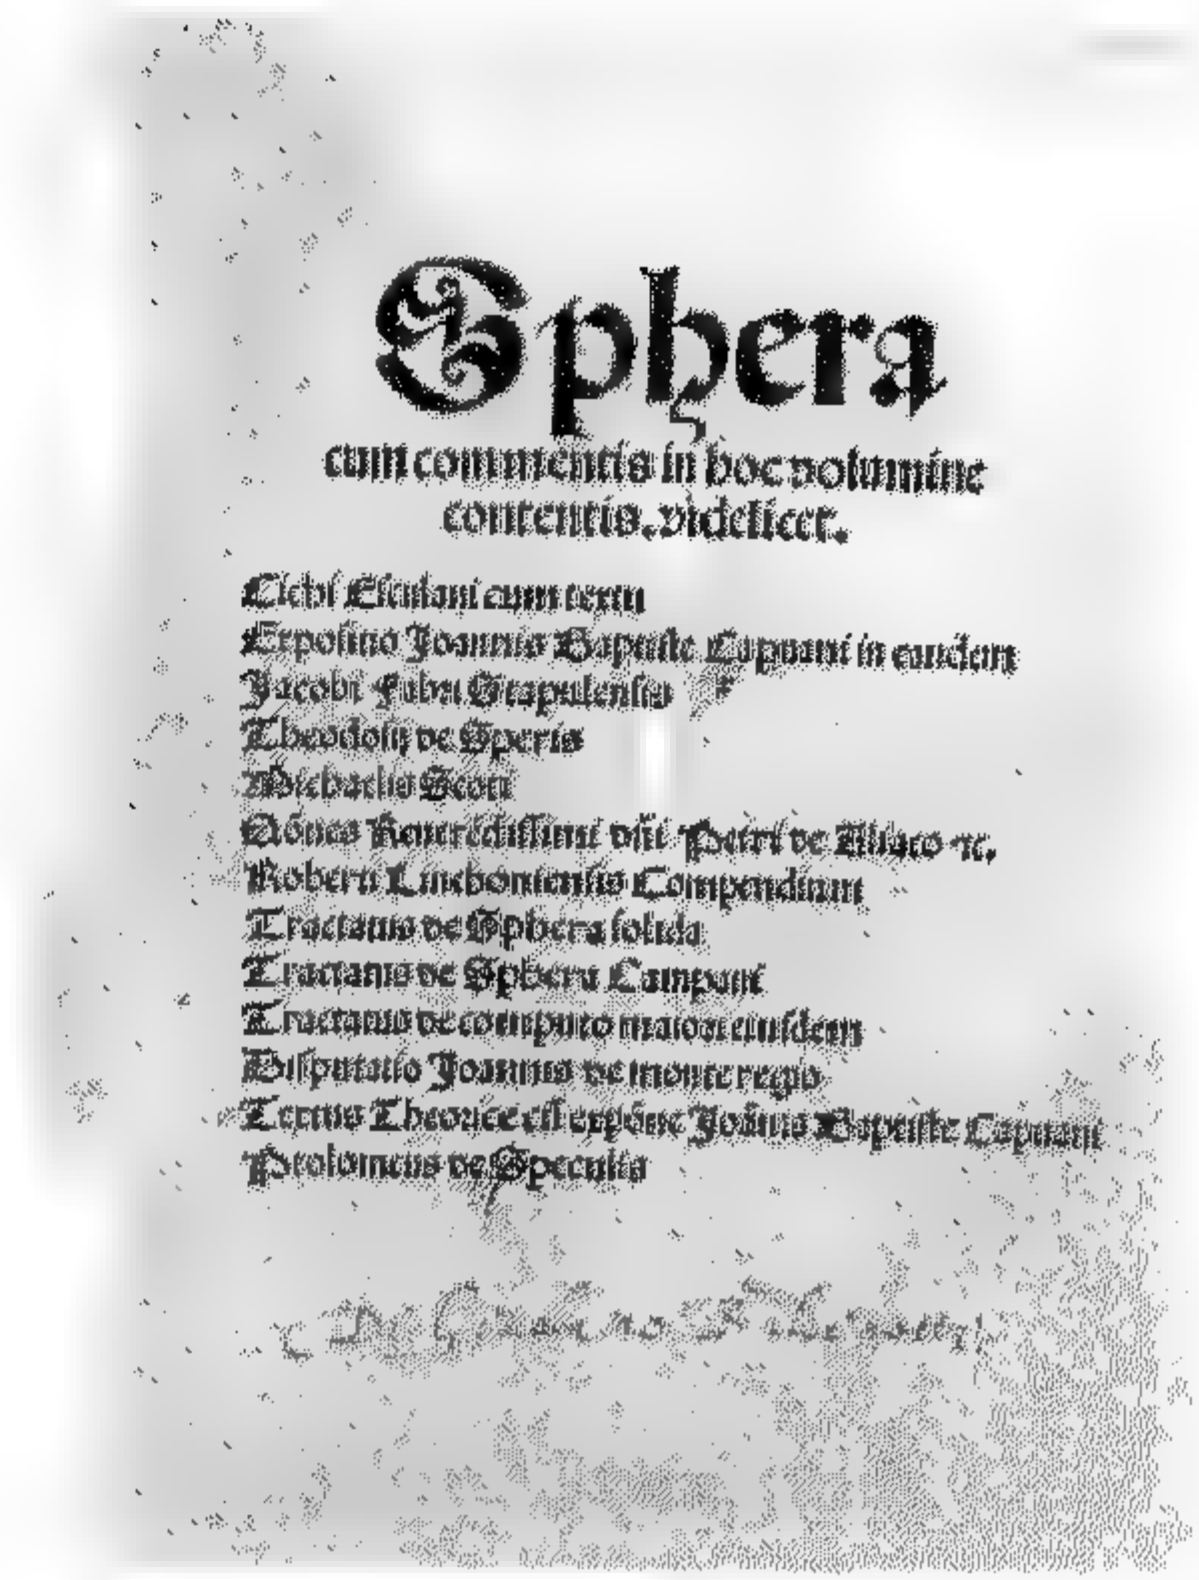 Sphera
cum commentis in hoc volumine
contentis. videlicet.
Cichi Esculani cum textu
Expositio Joannis Baptiste Capuani in eandem
Jacobi Fabri Stapulensis
Theodosij de Speris
Michaelis Scoti
Qōnes Reuerēdissimi dn̄i Petri de Aliaco ⁊c.
Roberti Linchoniensis Compendium
Tractatus de Sphera solida
Tractatus de Sphera Campani
Tractatus de computo maiori eiusdem
Disputatio Joannis de monte regio
Textus Theorice cū expōne Joānis Baptiste Capuani
Ptolomeus de Speculis